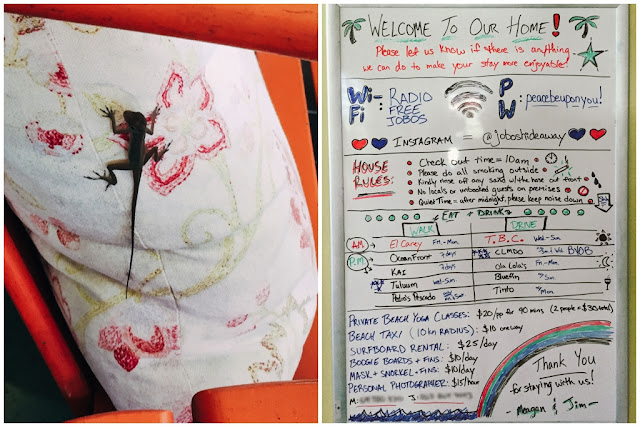 WELCOME TO OUR HOME!
Please let us know if there is anything
we can do to make your stay more enjoyable!
Wi-Fi: RADIO FREE JOBOS
PW: peacebeuponyou!
INSTAGRAM = @joboshideaway
HOUSE RULES:
• Check out time = 10am
• Please do all smoking outside
• Kindly rinse off any sand w/the hose out front
• No locals or unbooked guests on premises
• Quiet Time = after midnight, please keep noise down
EAT & DRINK
WALK DRIVE
AM El Carey Fri-Mon T.B.C. Wed-Sun
PM Ocean Front 7 days CLMDO BYOB
KAI 7 days Ola Lola's Fri-Mon
Tuluum Wed-Sun Bluefin
Pedro's Pescado Tinto
PRIVATE BEACH YOGA CLASSES: $20/pp for 90 mins (2 people = $30 total)
BEACH TAXI (10 km RADIUS): $10 one way
SURFBOARD RENTAL: $25/day
BOOGIE BOARDS + FINS: $10/day
MASK + SNORKEL + FINS: $10/day
PERSONAL PHOTOGRAPHER: $15/hour
M: J:
THANK YOU
for staying with us!
- Meagan & Jim -